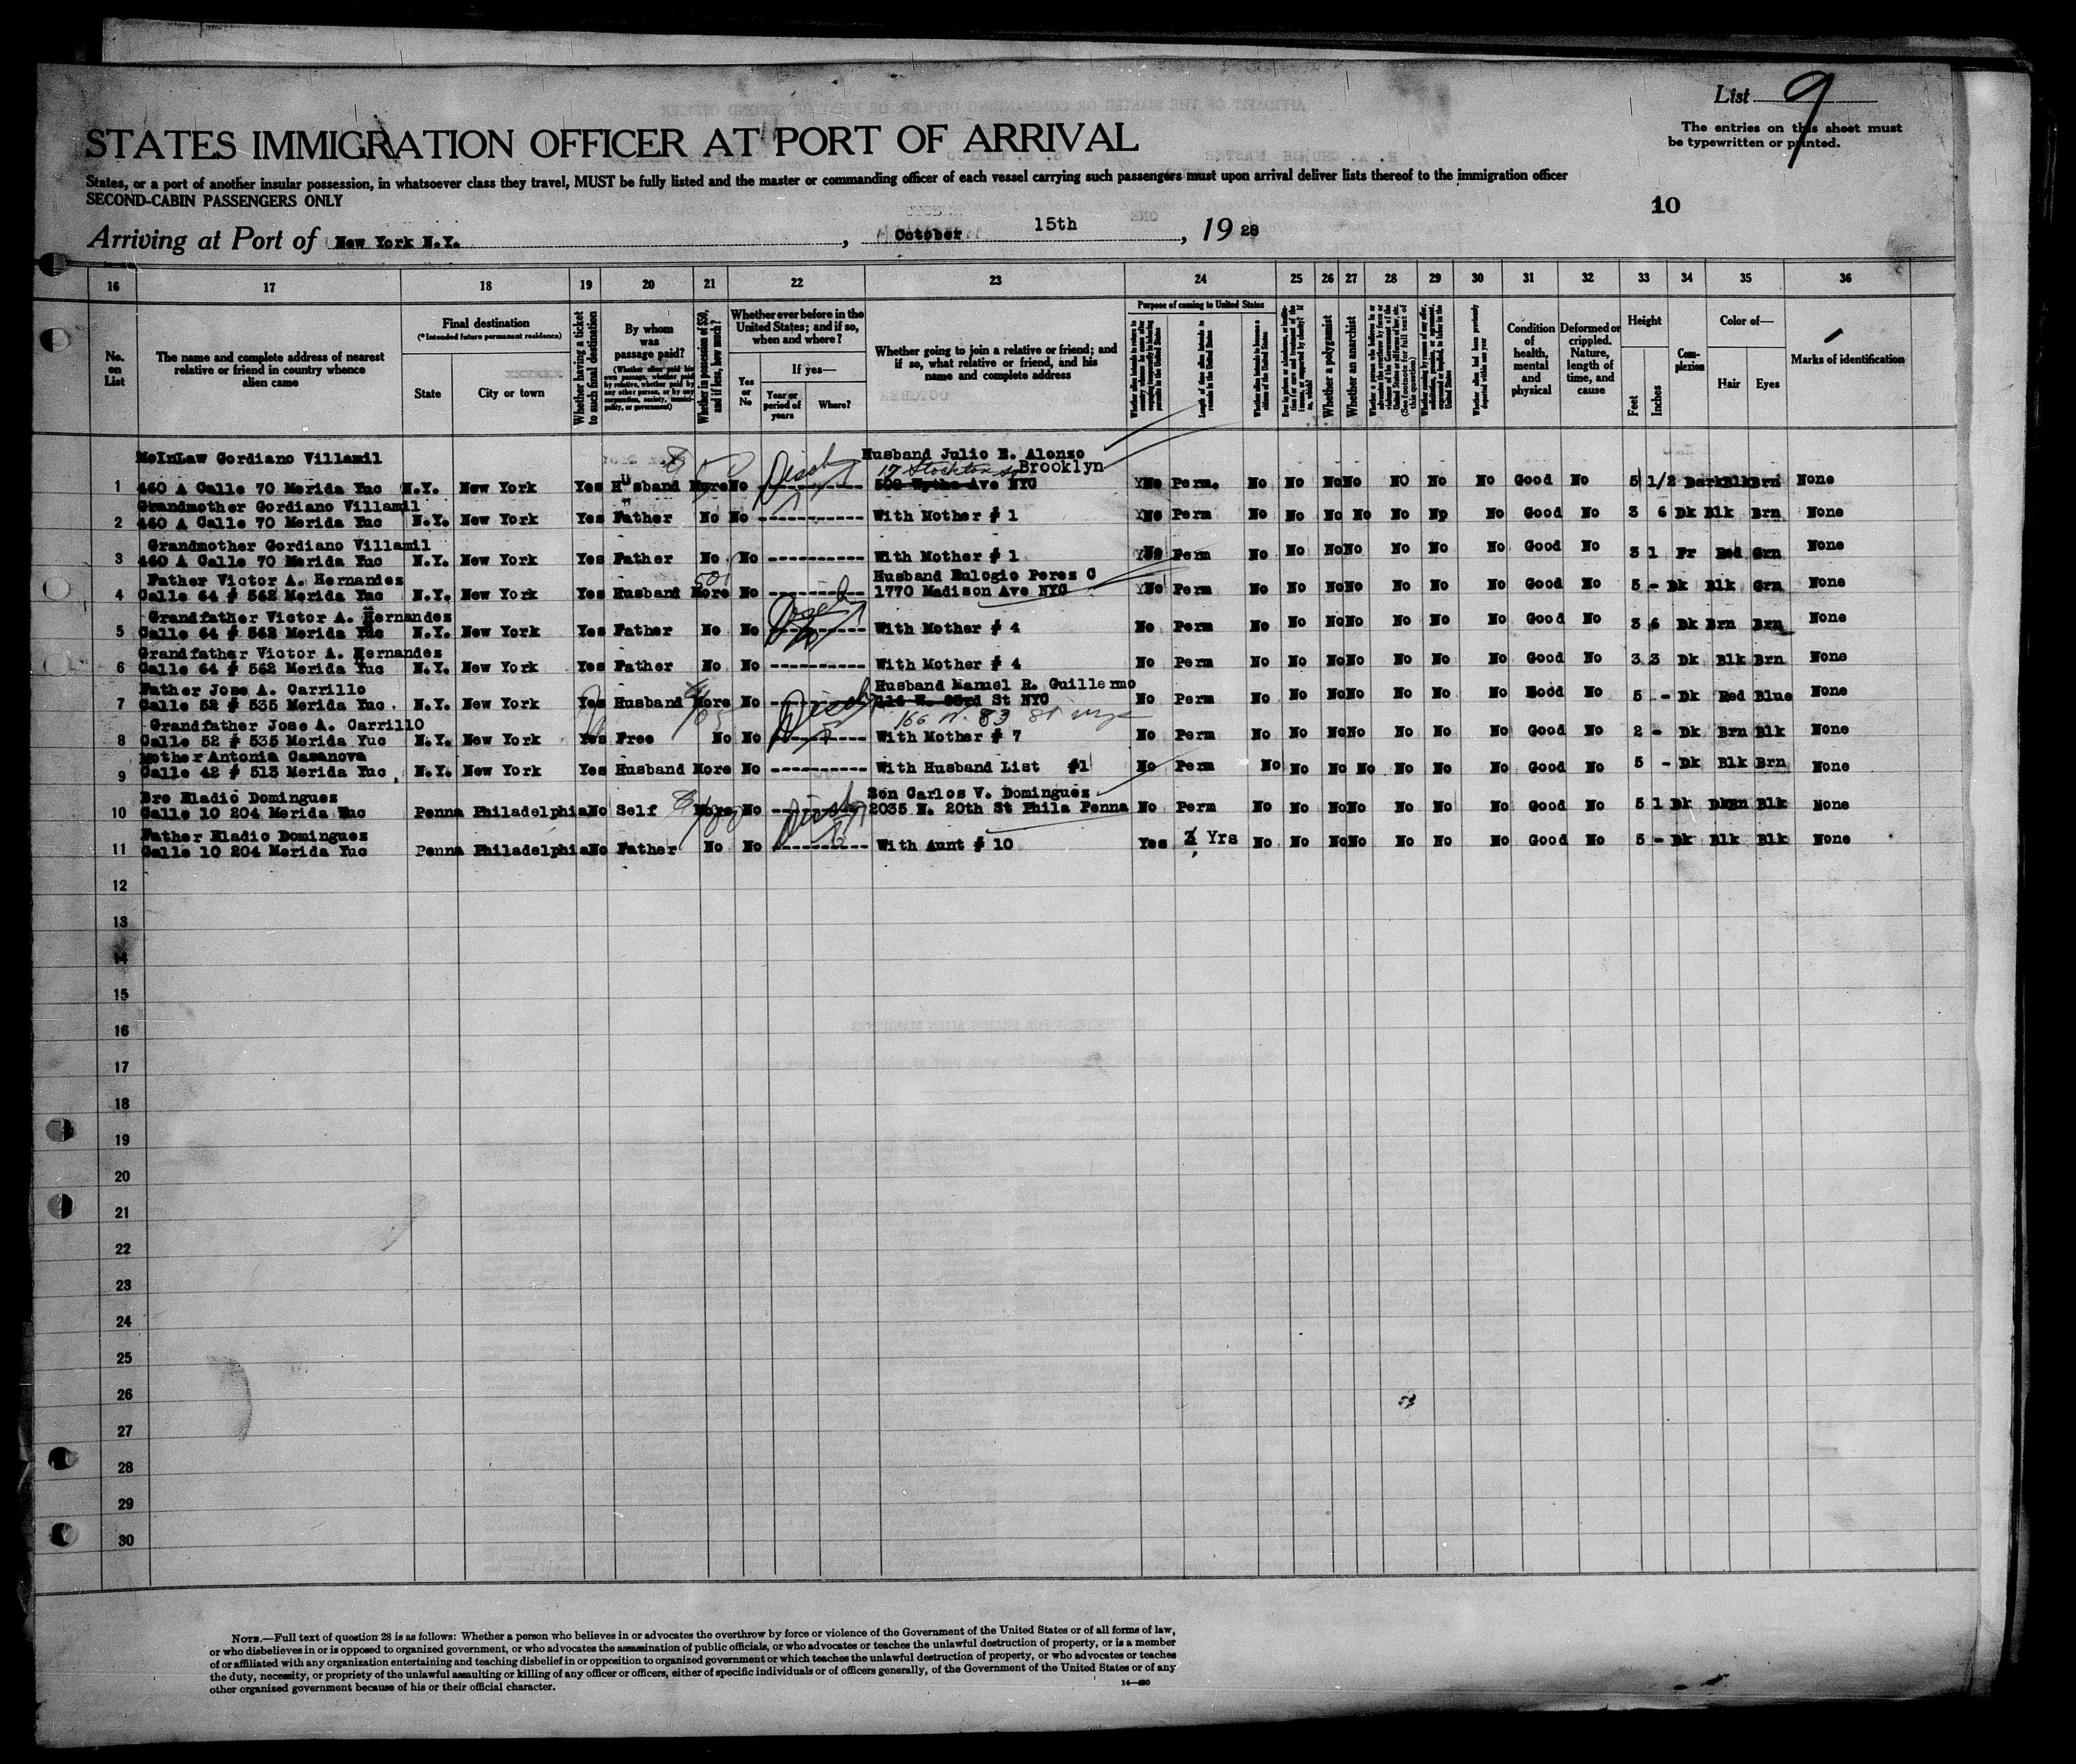 List 9
The entries on this sheet must
be typewritten or printed.
STATES IMMIGRATION OFFICER AT PORT OF ARRIVAL
States, or a port of another insular possession, in whatsoever class they travel, MUST be fully listed and the master or commanding officer of each vessel carrying such passengers must upon arrival deliver lists thereof to the immigration officer
SECOND-CABIN PASSENGERS ONLY
10
Arriving at Port of New York N.Y. , October 15th , 19 28
16 17 18 19 20 21 22 23 24 25 26 27 28 29 30 31 32 33 34 35 36
No. on List
The name and complete address of nearest relative or friend in country whence alien came
Final destination
(*Intended future permanent residence)
State
City or town
Whether having a ticket to such final destination
By whom was passage paid?
(Whether alien paid his own passage, whether paid by relative, whether paid by any other person, or by any corporation, society, municipality, or government)
Whether in possession of $50, and if less, how much?
Whether ever before in the United States; and if so, when and where?
Yes or No
If yes—
Year or period of years
Where?
Whether going to join a relative or friend; and if so, what relative or friend, and his name and complete address
Purpose of coming to United States
Length of time alien intends to remain in the United States
Whether alien intends to become a citizen of the United States
Whether a polygamist
Whether an anarchist
Condition of health, mental and physical
Deformed or crippled. Nature, length of time, and cause
Height
Feet
Inches
Complexion
Color of—
Hair
Eyes
Marks of identification
MoInLaw Gordiano Villamil Husband Julio E. Alonso
17 Stockton Brooklyn
1 460 A Calle 70 Merida Yuc N.Y. New York Yes Husband More No ---------- 500 Wythe Ave NYC No Perm. No No No No NO No No Good No 5 1/2 Dark Blk Brn None
Grandmother Gordiano Villamil
2 460 A Calle 70 Merida Yuc N.Y. New York Yes Father No No ---------- With Mother # 1 No Perm No No No No No No No Good No 3 6 Dk Blk Brn None
Grandmother Gordiano Villamil
3 460 A Calle 70 Merida Yuc N.Y. New York Yes Father No No ---------- With Mother # 1 No Perm No No No No No No No Good No 3 1 Fr Red Grn None
Father Victor A. Hernandes 50 Husband Eulogio Peres C
4 Calle 64 # 562 Merida Yuc N.Y. New York Yes Husband More No ---------- 1770 Madison Ave NYC No Perm No No No No No No No Good No 5 - Dk Blk Grn None
Grandfather Victor A. Hernandes
5 Calle 64 # 562 Merida Yuc N.Y. New York Yes Father No No ---------- With Mother # 4 No Perm No No No No No No No Good No 3 6 Dk Brn Brn None
Grandfather Victor A. Hernandes
6 Calle 64 # 562 Merida Yuc N.Y. New York Yes Father No No ---------- With Mother # 4 No Perm No No No No No No No Good No 3 3 Dk Blk Brn None
Father Jose A. Carrillo Husband Manuel R. Guillermo
7 Calle 52 # 535 Merida Yuc. N.Y. New York Yes Husband More No ---------- W. 83rd St NYC No Perm No No No No No No No Good No 5 - Dk Red Blue None
166 W. 83 St nyc
Grandfather Jose A. Carrillo
8 Calle 52 # 535 Merida Yuc N.Y. New York Yes Free No No ---------- With Mother # 7 No Perm No No No No No No No Good No 2 - Dk Brn Blk None
Mother Antonia Casanova
9 Calle 42 # 513 Merida Yuc, N.Y. New York Yes Husband More No ---------- With Husband List #1 No Perm No No No No No No No Good No 5 - Dk Blk Brn None
Bro Eladio Domingues Son Carlos V. Domingues
10 Calle 10 204 Merida Yuc Penna Philadelphia No Self More No ---------- 2035 N. 20th St Phila Penna No Perm No No No No No No No Good No 5 1 Dk Blk None
Father Eladio Domingues
11 Calle 10 204 Merida Yuc Penna Philadelphia No Father No No ---------- With Aunt # 10 Yes Yrs No No No No No No No Good No 5 - Dk Blk Blk None
12
13
14
15
16
17
18
19
20
21
22
23
24
25
26
27
28
29
30
NOTE.—Full text of question 28 is as follows: Whether a person who believes in or advocates the overthrow by force or violence of the Government of the United States or of all forms of law,
or who disbelieves in or is opposed to organized government, or who advocates the assassination of public officials, or who advocates or teaches the unlawful destruction of property, or is a member
of or affiliated with any organization entertaining and teaching disbelief in or opposition to organized government or which teaches the unlawful destruction of property, or who advocates or teaches
the duty, necessity, or propriety of the unlawful assaulting or killing of any officer or officers, either of specific individuals or of officers generally, of the Government of the United States or of any
other organized government because of his or their official character.